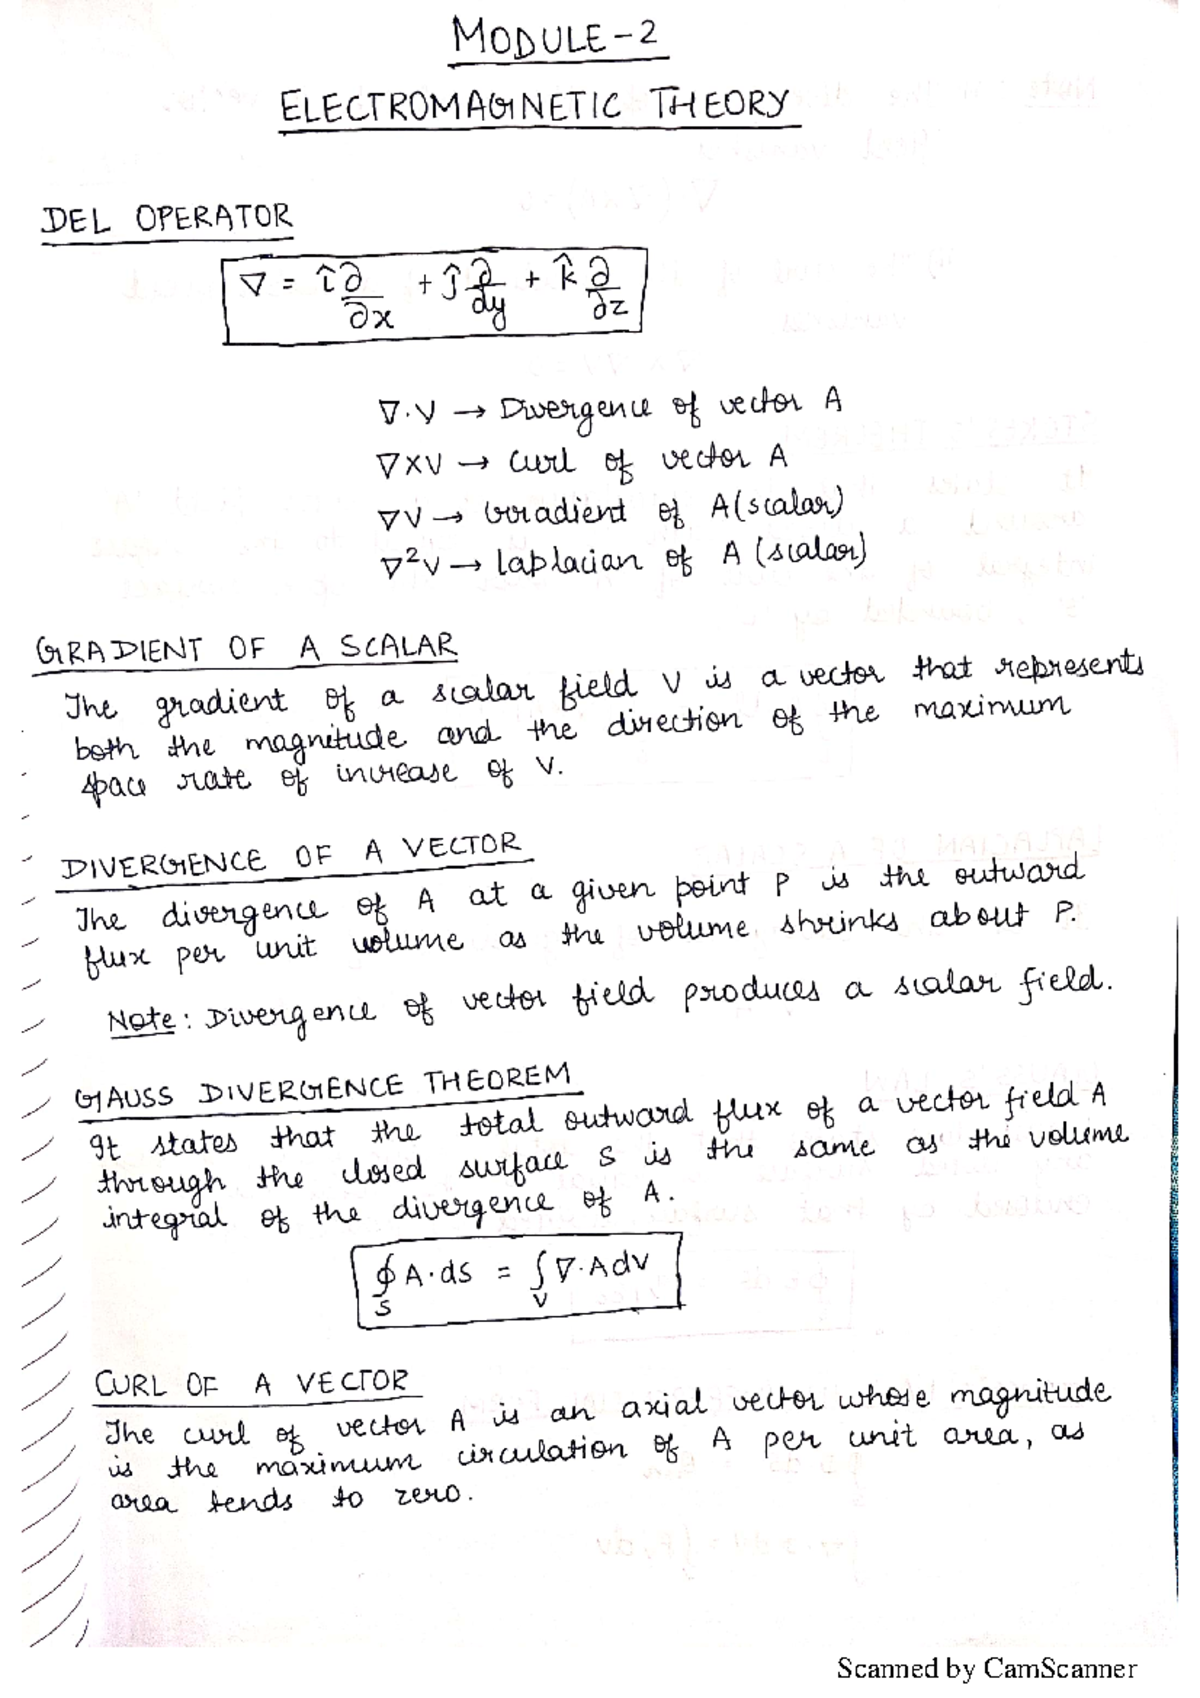 MODULE-2
ELECTROMAGNETIC THEORY
DEL OPERATOR
∇ = î ∂/∂x + ĵ ∂/dy + k̂ ∂/∂z
∇·V → Divergence of vector A
∇×V → Curl of vector A
∇V → Gradient of A (scalar)
∇²V → Laplacian of A (scalar)
GRADIENT OF A SCALAR
The gradient of a scalar field V is a vector that represents
both the magnitude and the direction of the maximum
space rate of increase of V.
DIVERGENCE OF A VECTOR
The divergence of A at a given point P is the outward
flux per unit volume as the volume shrinks about P.
Note: Divergence of vector field produces a scalar field.
GAUSS DIVERGENCE THEOREM
It states that the total outward flux of a vector field A
through the closed surface S is the same as the volume
integral of the divergence of A.
∮_S A·dS = ∫_V ∇·A dV
CURL OF A VECTOR
The curl of vector A is an axial vector whose magnitude
is the maximum circulation of A per unit area, as
area tends to zero.
Scanned by CamScanner